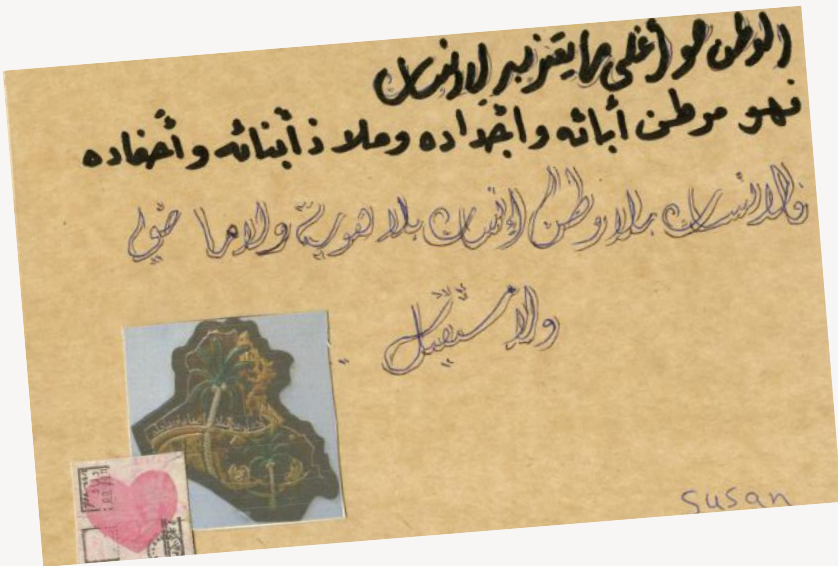 الوطن هو أغلى ما يعتز به الانسان
فهو موطن أبائه وأجداده وملاذ أبنائه وأحفاده
فالانسان بلا وطن إنسان بلا هوية ولا ماضي
ولا مستقبل
Susan